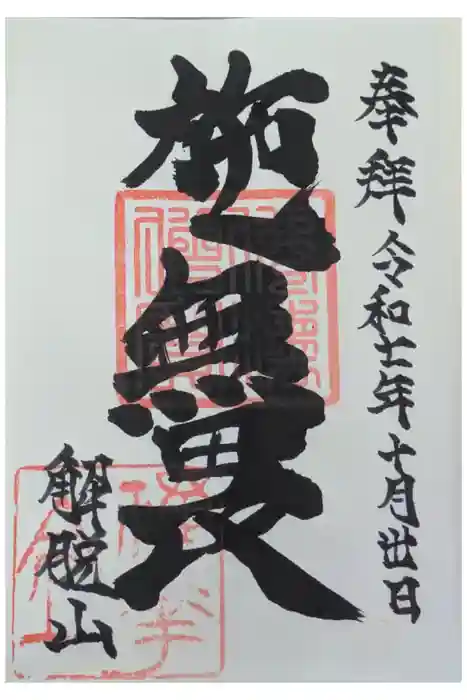 奉拝 令和七年十月丗日
施無畏
解脱山